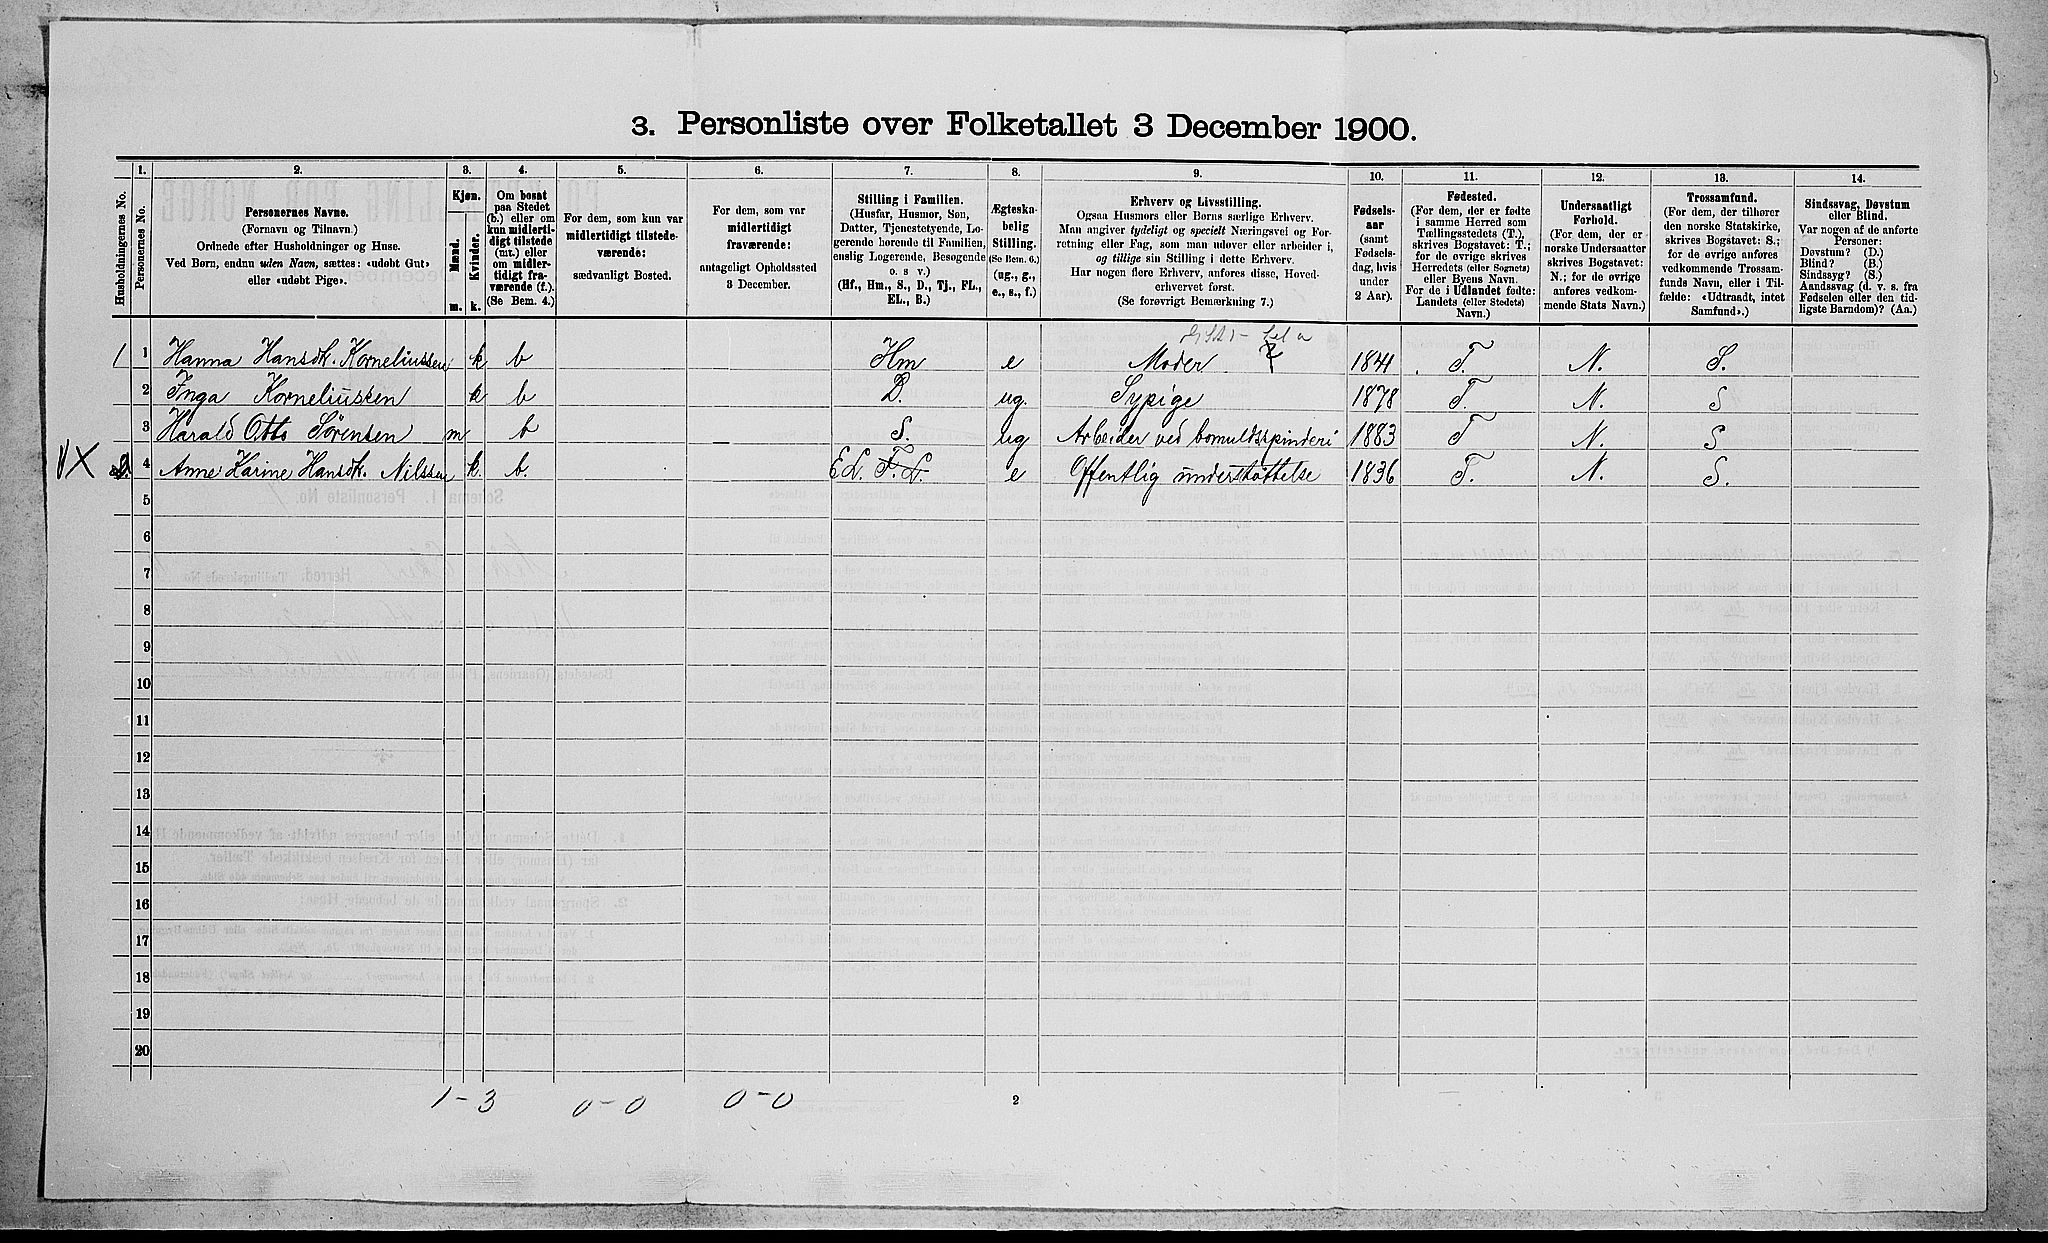 3. Personliste over Folketallet 3 December 1900.
1. 2. 3. 4. 5. 6. 7. 8. 9. 10. 11. 12. 13. 14.
Husholdningernes No.
Personernes No.
Personernes Navne.
(Fornavn og Tilnavn.)
Ordnede efter Husholdninger og Huse.
Ved Børn, endnu uden Navn, sættes: «udøbt Gut»
eller «udøbt Pige».
Kjøn.
Mænd.
Kvinder.
m. k.
Om bosat
paa Stedet
(b.) eller om
kun midlerti-
digt tilstede
(mt.) eller
om midler-
tidigt fra-
værende (f.).
(Se Bem. 4.)
For dem, som kun var
midlertidigt tilstede-
værende:
sædvanligt Bosted.
For dem, som var
midlertidigt
fraværende:
antageligt Opholdssted
3 December.
Stilling i Familien.
(Husfar, Husmor, Søn,
Datter, Tjenestetyende, Lo-
gerende hørende til Familien,
enslig Logerende, Besøgende
o. s v.)
(Hf., Hm., S., D., Tj., FL.,
EL., B.)
Ægteska-
belig
Stilling.
(Se Bem. 6.)
(ug., g.,
e., s., f.)
Erhverv og Livsstilling.
Ogsaa Husmors eller Børns særlige Erhverv.
Man angiver tydeligt og specielt Næringsvei og For-
retning eller Fag, som man udøver eller arbeider i,
og tillige sin Stilling i dette Erhverv.
Har nogen flere Erhverv, anføres disse, Hoved-
erhvervet først.
(Se forøvrigt Bemærkning 7.)
Fødsels-
aar
(samt
Fødsels-
dag, hvis
under
2 Aar).
Fødested.
(For dem, der er fødte
i samme Herred som
Tællingsstedets (T.),
skrives Bogstavet: T.;
for de øvrige skrives
Herredets (eller Sognets)
eller Byens Navn.
For de i Udlandet fødte:
Landets (eller Stedets)
Navn.)
Undersaatligt
Forhold.
(For dem, der er
norske Undersaatter
skrives Bogstavet:
N.; for de øvrige
anføres vedkom-
mende Stats Navn.)
Trossamfund.
(For dem, der tilhører
den norske Statskirke,
skrives Bogstavet: S.;
for de øvrige anføres
vedkommende Trossam-
funds Navn, eller i Til-
fælde: «Udtraadt, intet
Samfund».)
Sindssvag, Døvstum
eller Blind.
Var nogen af de anførte
Personer:
Døvstum? (D.)
Blind? (B.)
Sindssyg? (S.)
Aandssvag (d. v. s. fra
Fødselen eller den tid-
ligste Barndom)? (Aa.)
1 1 Hanna Hansdtr. Korneliussen k b Hm e Moder 1841 T. N. S.
2 Inga Korneliussen k b D. ug. Sypige 1878 T. N. S
3 Harald Otto Sørensen m b S. ug Arbeider ved bomuldsspinderi 1883 T N. S
X 2. 4 Anne Karine Hansdtr. Nilssen k. b. EL. F.L. e Offentlig understøttelse 1836 T. N. S.
5
6
7
8
9
10
11
12
13
14
15
16
17
18
19
20
1-3 0-0 0-0 2